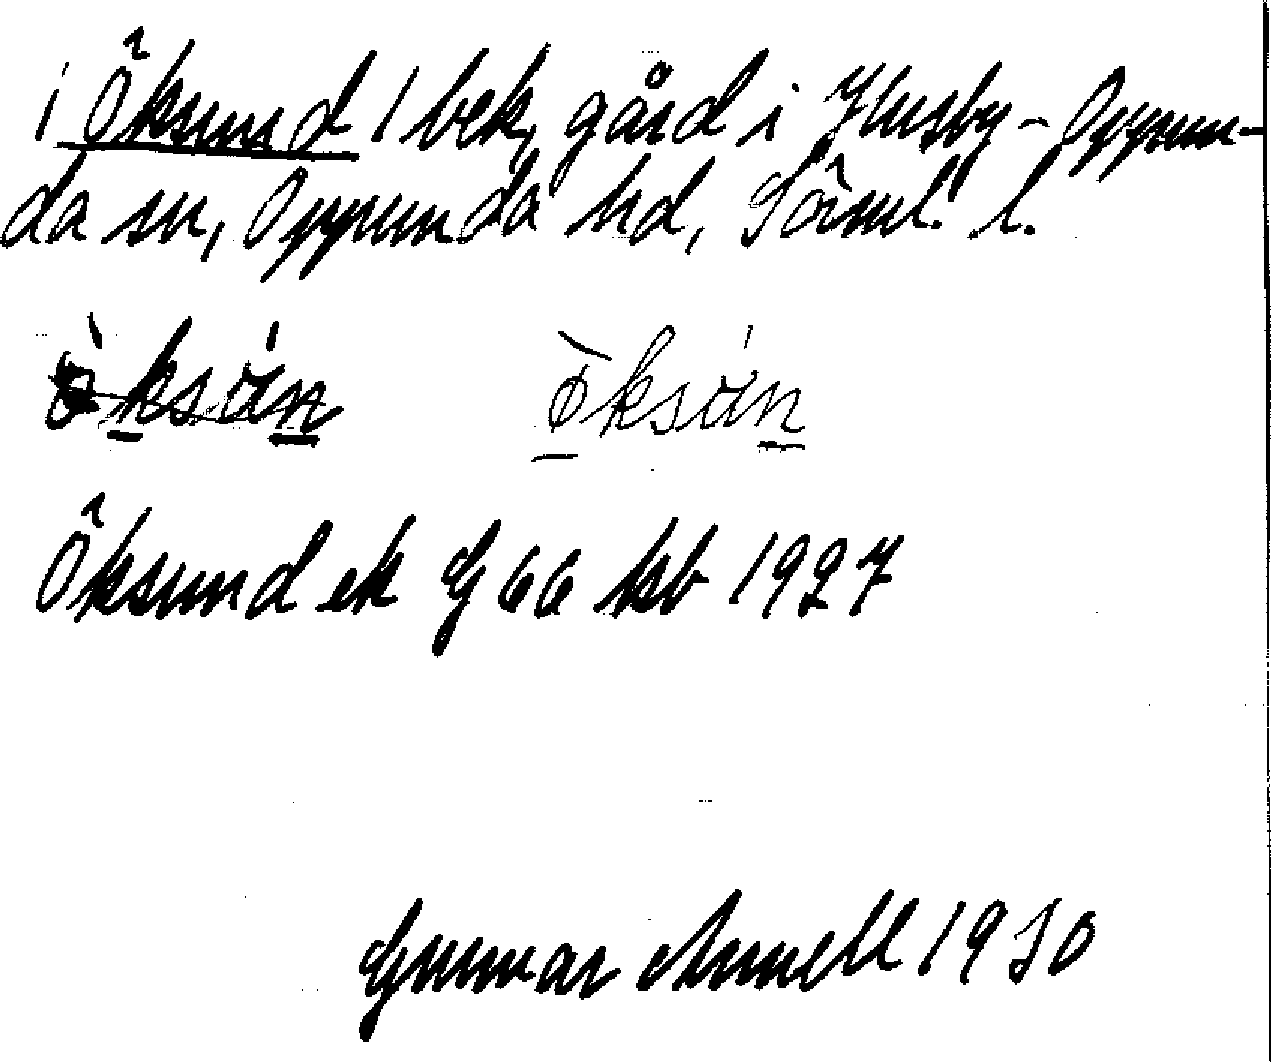 i Öksund 1 bek, gård i Husby-Oppun-
da sn, Oppunda hd, Söml. l.
Öksund ek G 66 kb 1927
Gunnar Annell 1930